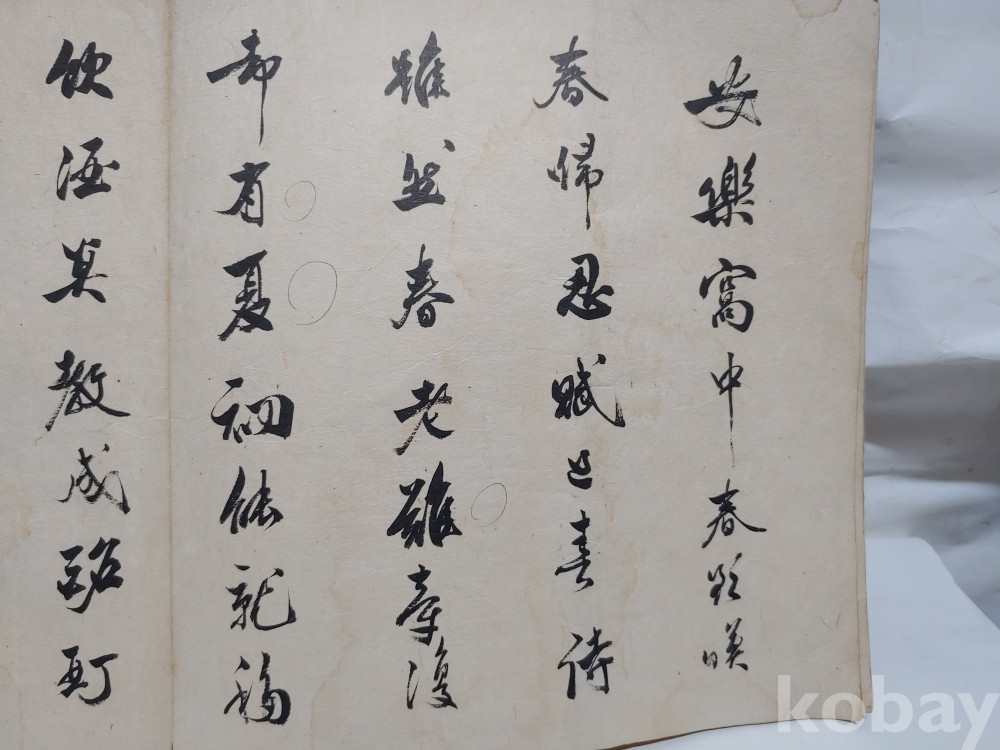 安樂窩中春欲歸
春歸忍賦送春詩
雖然春老難牽復
却有夏初能就移
飲酒莫教成酩酊
kobay